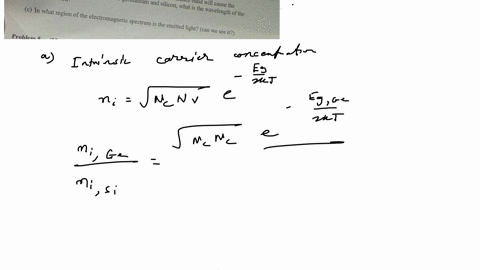 and silicon, what is the wavelength of the
(c) In what region of the electromagnetic spectrum is the emitted light? (can we see it?)
a) Intrinsic carrier concentration
ni = √Nc Nv e - Eg/2kT
ni, Ge / ni, Si = √Nc Nc e - Eg, Ge/2kT